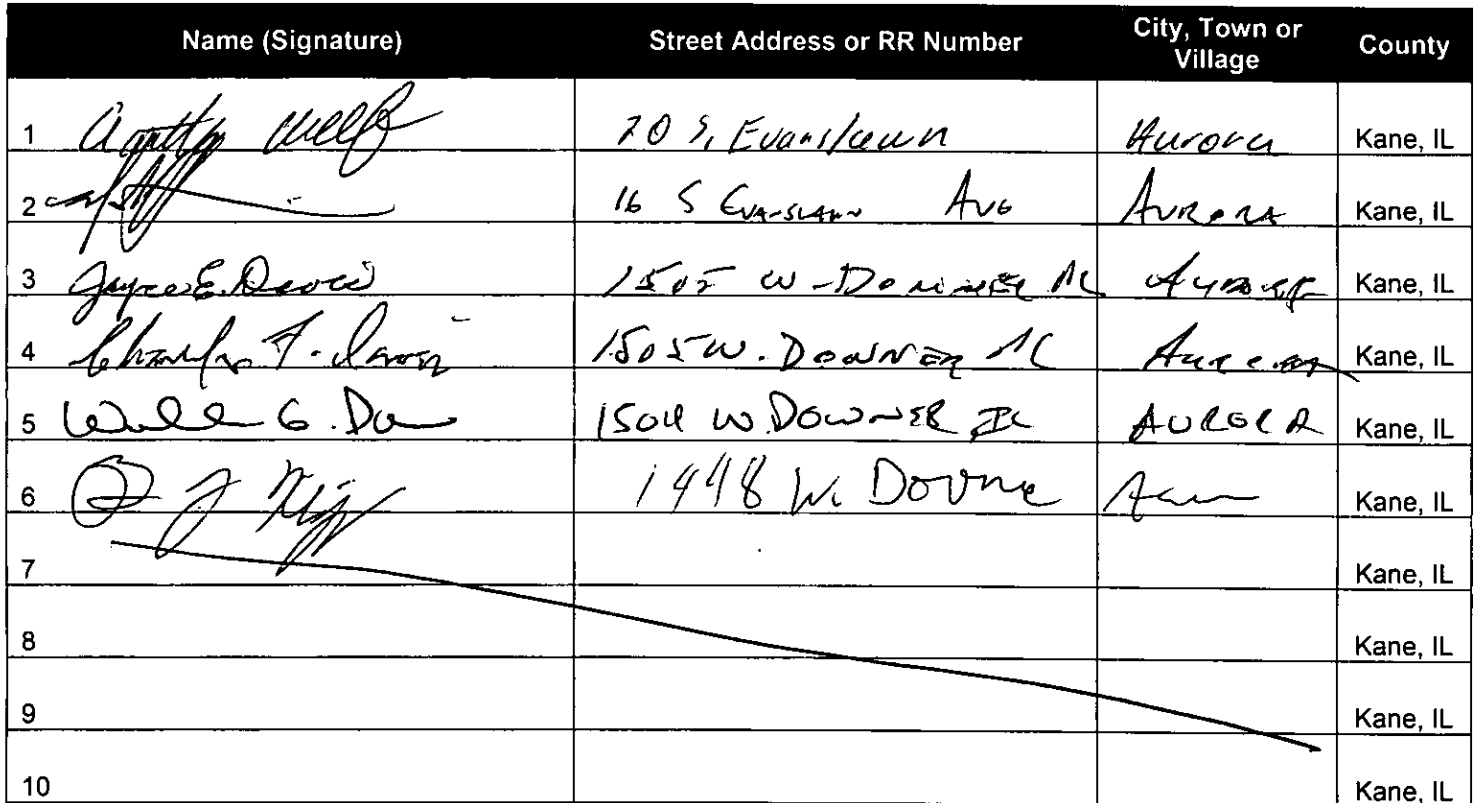 Name (Signature) Street Address or RR Number City, Town or Village County
1 20 S. Evanslawn Aurora Kane, IL
2 16 S Evanslawn Ave Aurora Kane, IL
3 Joyce E. Davis 1505 W. Downer Pl Aurora Kane, IL
4 Charles F. Davis 1505 W. Downer Pl Aurora Kane, IL
5 G. 1504 W. Downer Pl AURORA Kane, IL
6 1448 W. Kane, IL
7 Kane, IL
8 Kane, IL
9 Kane, IL
10 Kane, IL